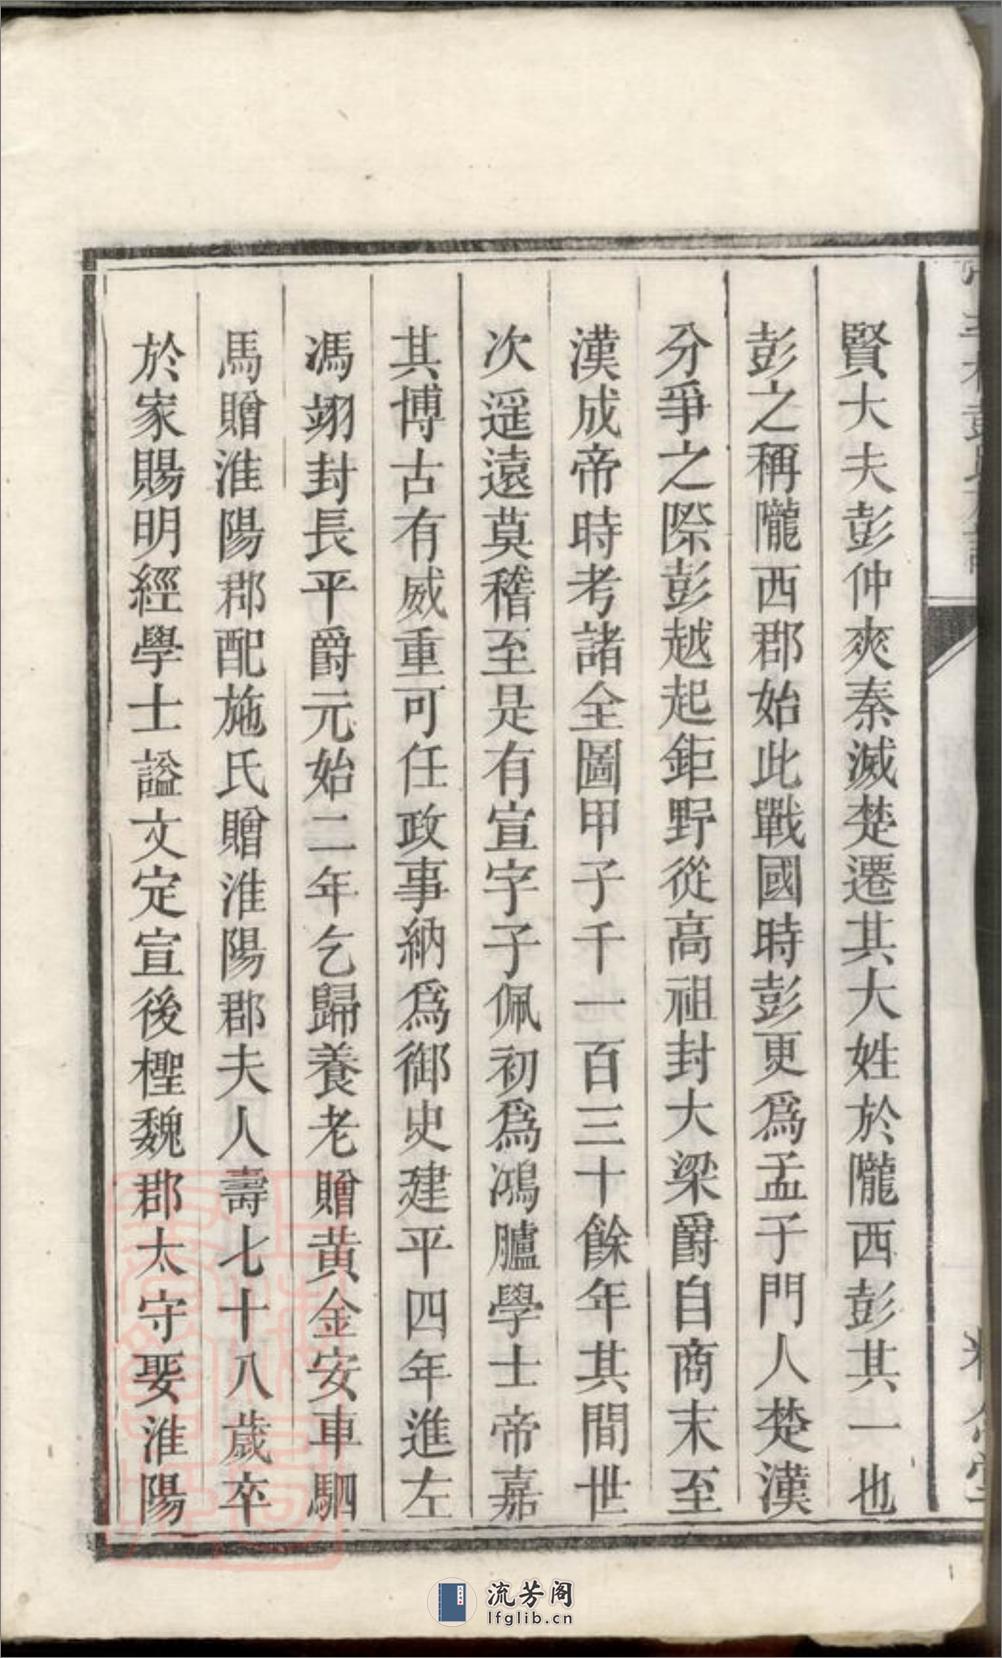 賢大夫彭仲爽秦滅楚遷其大姓於隴西彭其一也
彭之稱隴西郡始此戰國時彭更爲孟子門人楚漢
分爭之際彭越起鉅野從高祖封大梁爵自商末至
漢成帝時考諸全圖甲子千一百三十餘年其間世
次遥遠莫稽至是有宣字子佩初爲鴻臚學士帝嘉
其博古有威重可任政事納爲御史建平四年進左
馮翊封長平爵元始二年乞歸養老贈黄金安車駟
馬贈淮陽郡配施氏贈淮陽郡夫人壽七十八歲卒
於家賜明經學士謚文定宣後檉魏郡太守娶淮陽
流芳阁
lfglib.cn